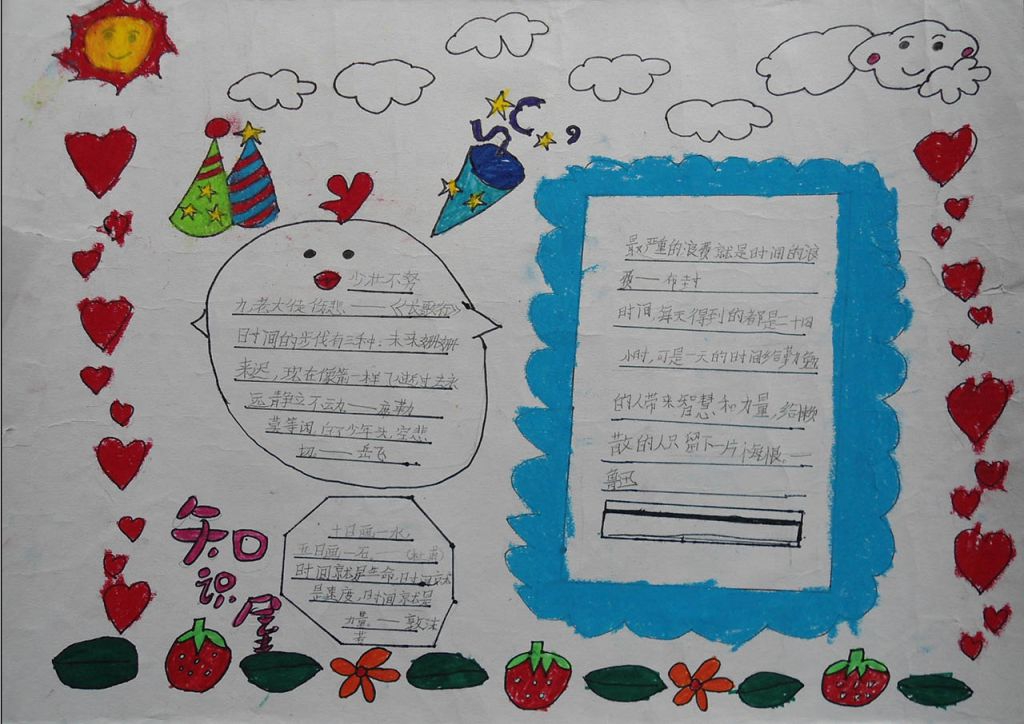 少壮不努
力,老大徒伤悲——《长歌行》
时间的步伐有三种:未来姗姗
来迟,现在像箭一样飞逝,过去永
远静立不动——席勒
莫等闲,白了少年头,空悲
切——岳飞
知识屋
十日画一水,
五日画一石——(杜甫)
时间就是生命,时间就
是速度,时间就是
力量——郭沫
若
最严重的浪费就是时间的浪
费——布封
时间,每天得到的都是二十四
小时,可是一天的时间给勤勉
的人带来智慧和力量,给懒
散的人只留下一片悔恨。—
鲁迅